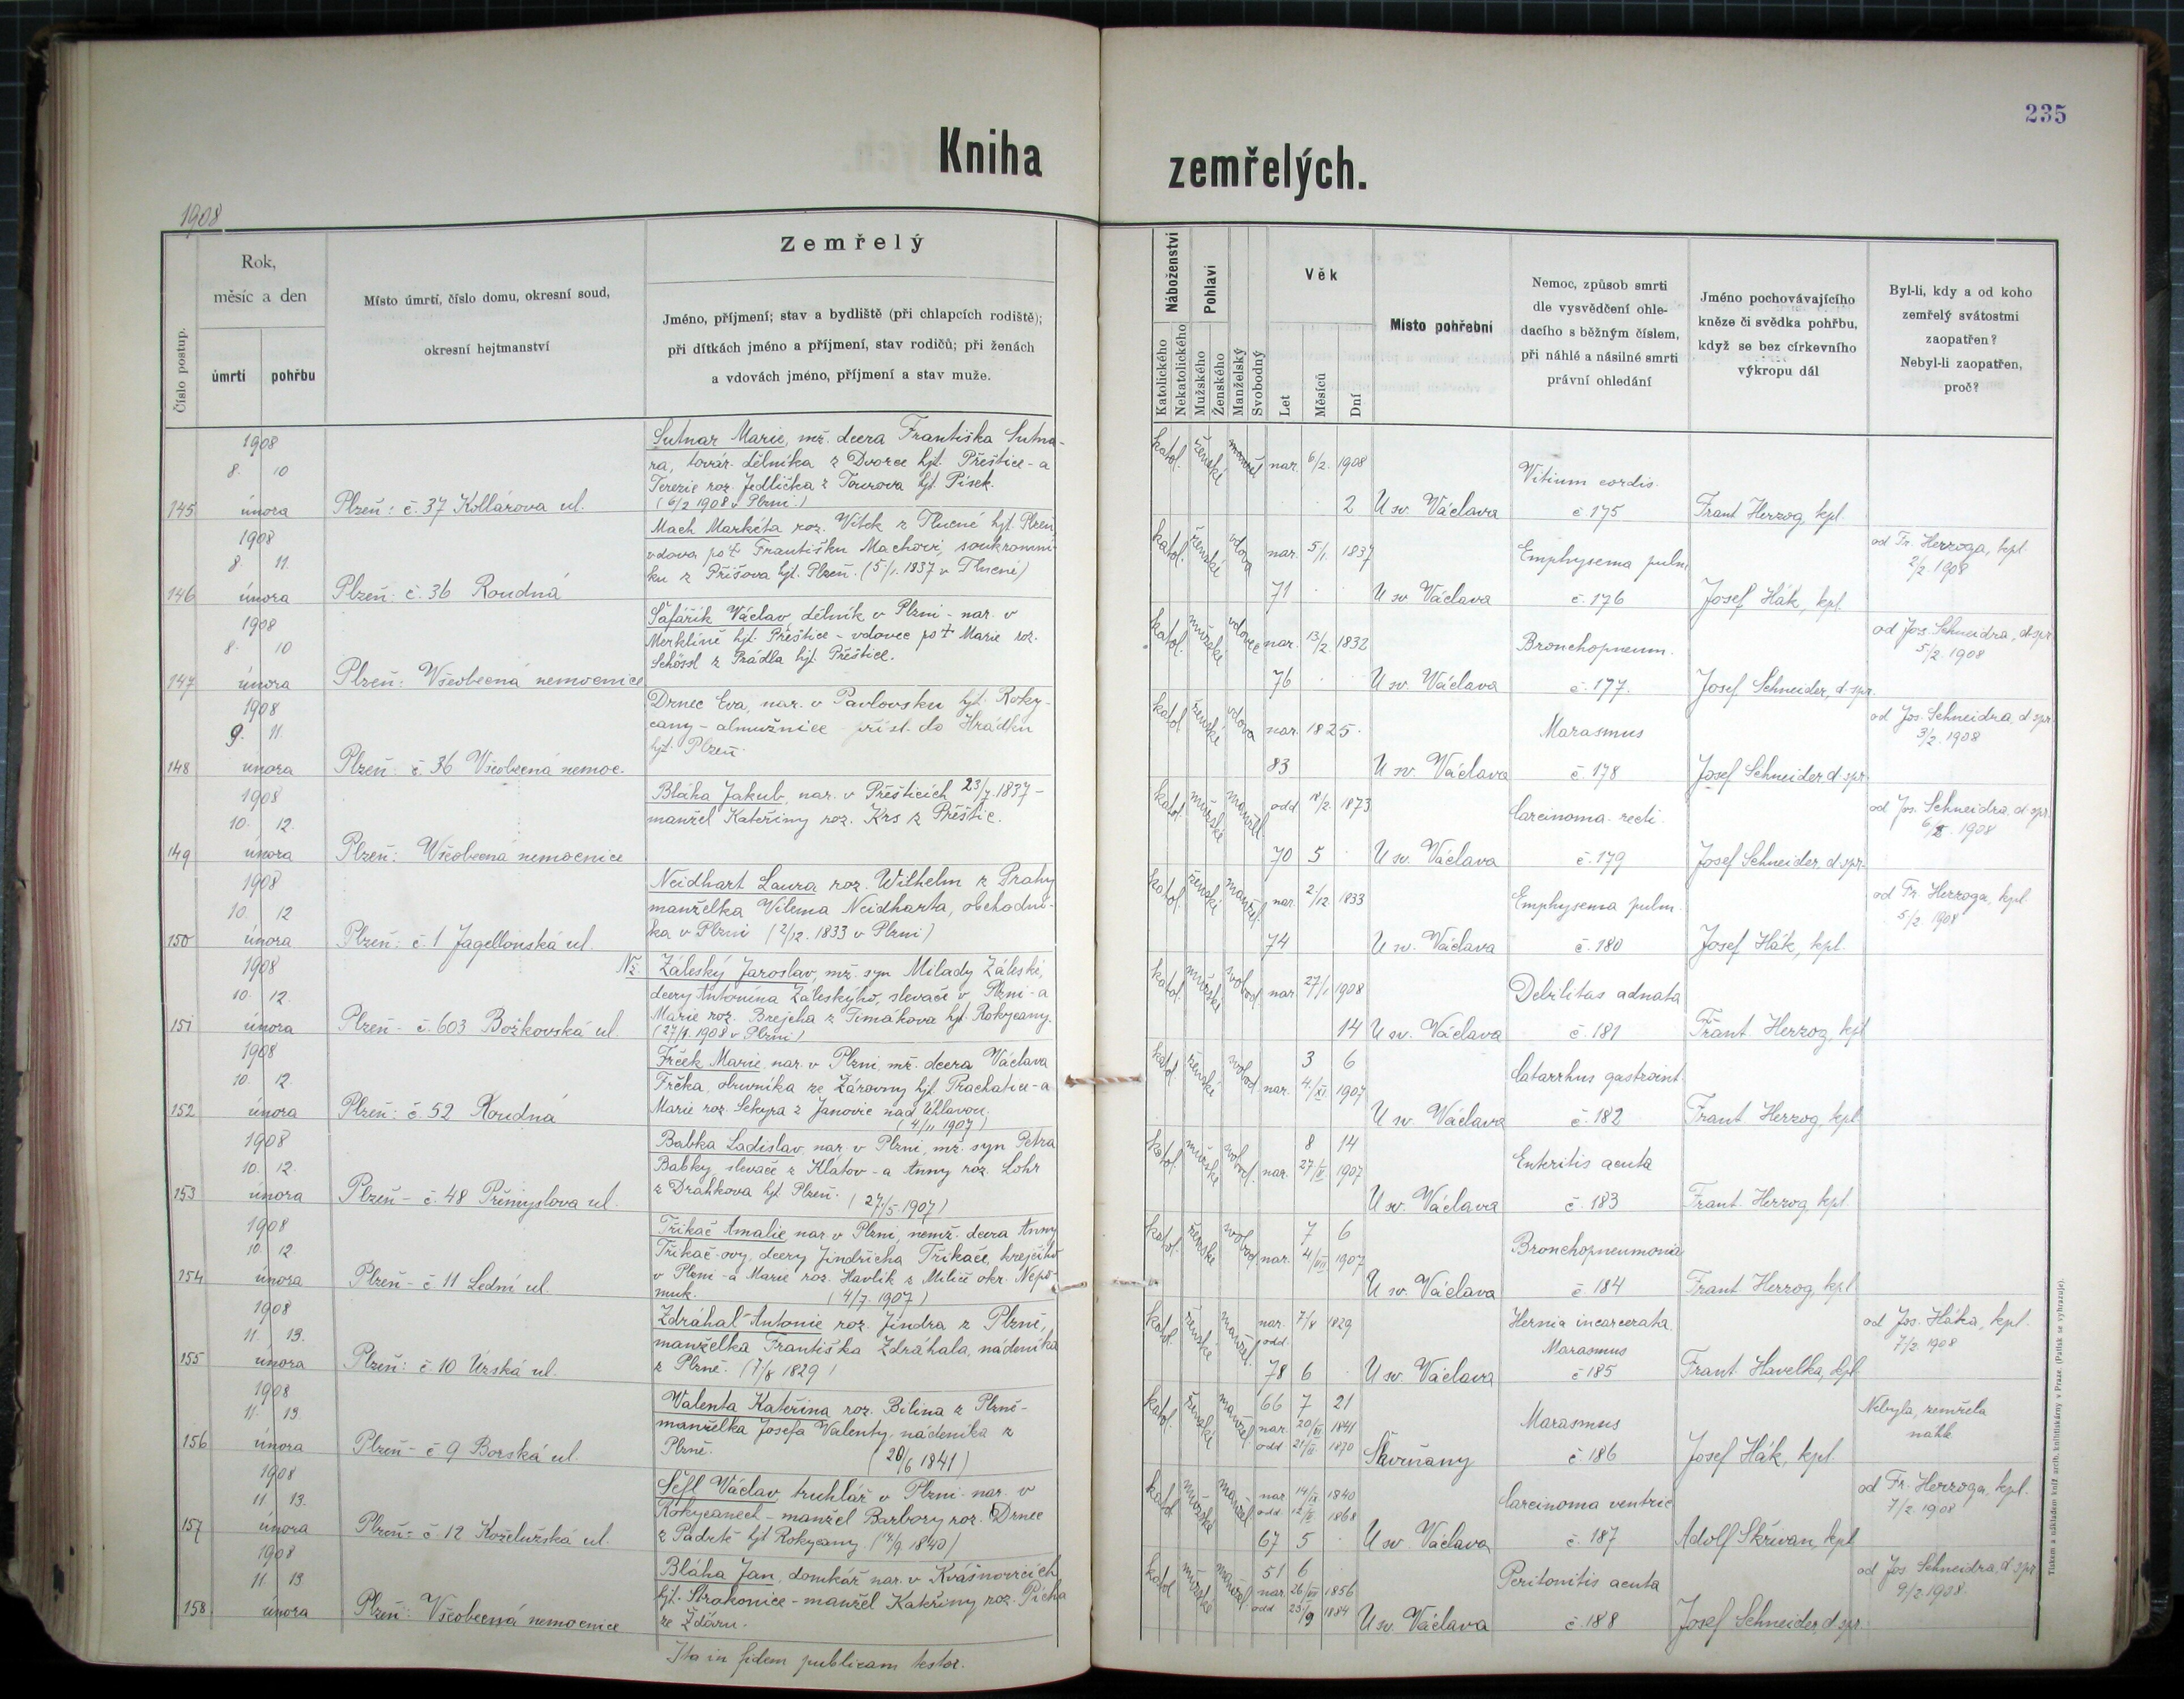 235
Kniha zemřelých.
1908
Číslo postup.
Rok,
měsíc a den
úmrtí
pohřbu
Místo úmrtí, číslo domu, okresní soud,
okresní hejtmanství
Zemřelý
Jméno, příjmení; stav a bydliště (při chlapcích rodiště);
při dítkách jméno a příjmení, stav rodičů; při ženách
a vdovách jméno, příjmení a stav muže.
Náboženství
Katolického
Nekatolického
Pohlaví
Mužského
Ženského
Manželský
Svobodný
Věk
Let
Měsíců
Dní
Místo pohřební
Nemoc, způsob smrti
dle vysvědčení ohle-
dacího s běžným číslem,
při náhlé a násilné smrti
právní ohledání
Jméno pochovávajícího
kněze či svědka pohřbu,
když se bez církevního
výkropu dál
Byl-li, kdy a od koho
zemřelý svátostmi
zaopatřen?
Nebyl-li zaopatřen,
proč?
145
1908
8. 10
února
Plzeň: č. 37 Kollárova ul.
Sutnar Marie, mž. dcera Františka Sutna-
ra, továr. dělníka z Dvorce hjt. Přeštice - a
Terezie roz. Jedlička z Tourova hjt. Písek.
(6/2 1908 v Plzni)
katol. ženské nar. 6/2. 1908
2
U sv. Václava
Vitium cordis.
č 175
Frant Herzog, kpl.
146
1908
8. 11.
února
Plzeň: č. 36 Roudná
Mach Markéta roz. Vítek z Tlucné hjt. Plzeň
vdova po † Františku Machovi, soukromní-
ku z Příšova hjt. Plzeň. (5/1. 1837 v Tlucné)
katol. ženské vdova nar. 5/1. 1837
71
U sv. Václava
Emphysema pulm.
č. 176
Josef Hák, kpl.
od Fr. Herzoga, kpl.
2/2. 1908
147
1908
8. 10
února
Plzeň: Všeobecná nemocnice
Šafařík Václav, dělník v Plzni - nar. v
Merklíně hjt. Přeštice - vdovec po † Marie roz.
Schössl z Prádla hjt. Přeštice.
katol. mužské vdovec nar. 13/2. 1832
76
U sv. Václava
Bronchopneum.
č. 177.
Josef Schneider, d. spr.
od Jos. Schneidra, d. spr.
5/2. 1908
148
1908
9. 11.
února
Plzeň: č. 36 Všeobecná nemoc.
Drnec Eva, nar. v Pavlovsku hjt. Roky-
cany - almužnice přísl. do Hrádku
hjt. Plzeň.
katol. ženské vdova nar. 1825.
83
U sv. Václava
Marasmus
č. 178
Josef Schneider d. spr.
od Jos. Schneidra, d. spr.
3/2. 1908
149
1908
10. 12.
února
Plzeň: Všeobecná nemocnice
Bláha Jakub, nar. v Přešticích 23/7 1837 -
manžel Kateřiny roz. Krs z Přeštic.
katol. mužské manžel odd 18/2. 1873
70 5
U sv. Václava
Carcinoma recti.
č. 179
Josef Schneider, d. spr.
od Jos. Schneidra, d. spr.
1908
150
1908
10. 12
února
Plzeň: č. 1 Jagellonská ul.
Neidhart Laura roz. Wilhelm z Prahy
manželka Vilema Neidharta, obchodní-
ka v Plzni (2/12. 1833 v Plzni)
katol. ženské manžel. nar. 2/12 1833
74
U sv. Václava
Emphysema pulm.
č. 180
Josef Hák, kpl.
od Fr. Herzoga, kpl
5/2. 1908
151
1908
10. 12.
února
Plzeň - č. 603 Božkovská ul.
Nž. Záleský Jaroslav, mž. syn Milady Záleské,
dcery Antonína Záleskýho, slevače v Plzni - a
Marie roz. Brejcha z Timákova hjt. Rokycany.
(27/1. 1908 v Plzni)
katol. mužské svobod nar 27/1 1908
14
U sv. Václava
Debilitas adnata
č. 181
Frant. Herzog, kpl
152
1908
10. 12.
února
Plzeň: č. 52 Roudná
Frček Marie, nar. v Plzni, mž. dcera Václava
Frčka, obuvníka ze Záravny hjt. Prachatice - a
Marie roz. Sekyra z Janovic nad Úhlavou.
(4/11 1907)
katol. ženské svobod 3 6
nar. 4/XI 1907
U sv. Václava
Catarrhus gastroint.
č. 182
Frant Herzog, kpl.
153
1908
10. 12.
února
Plzeň - č. 48 Přemyslova ul.
Babka Ladislav, nar. v Plzni, mž. syn Petra
Babky, slevače z Klatov - a Anny roz. Lohr
z Drahkova hjt. Plzeň. (27/5 1907)
katol. mužské svobod. 8 14
nar. 27/V 1907
U sv. Václava
Enteritis acuta
č. 183
Frant. Herzog, kpl.
154
1908
10. 12.
února
Plzeň - č 11 Lední ul.
Třikač Amalie nar. v Plzni, nemž. dcera Anny
Třikač-ovy, dcery Jindřicha Třikače, krejčího
v Plzni - a Marie roz. Havlík z Milič okr. Nepo-
muk. (4/7. 1907)
katol. ženské svobod 7 6
nar. 4/VII 1907
U sv. Václava
Bronchopneumonia
č. 184
Frant. Herzog, kpl.
155
1908
11. 13.
února
Plzeň: č 10 Úzská ul.
Zdráhal Antonie roz. Jindra z Plzně,
manželka Františka Zdráhala, nádeníka
z Plzně. (7/8 1829)
katol. ženské manžel. nar. 7/8 1829
odd.
78 6
U sv. Václava
Hernia incarcerata.
Marasmus
č 185
Frant. Havelka, kpl
od Jos. Háka, kpl.
7/2 1908
156
1908
11. 13.
února
Plzeň - č 9 Borská ul.
Valenta Kateřina roz. Bílina z Plzně -
manželka Josefa Valenty, nádeníka z
Plzně. (20/6 1841)
katol. ženské manžel. 66 7 21
nar. 20/VI 1841
odd 21/II 1870
Skvrňany
Marasmus
č 186
Josef Hák, kpl.
Nebyla, zemřela
náhle
157
1908
11. 13.
února
Plzeň: č 12 Koželužská ul.
Šefl Václav, truhlář v Plzni - nar. v
Rokycanech - manžel Barbory roz. Drnec
z Padrtě hjt Rokycany. (14/9 1840)
katol mužské manžel nar. 14/IX 1840
odd. 1868
67 5
U sv. Václava
Carcinoma ventric
č. 187
Adolf Skřivan, kpl
od Fr. Herzoga, kpl.
7/2. 1908
158
1908
11 13
února
Plzeň: Všeobecná nemocnice
Bláha Jan, domkář nar. v Krašnovicích
hjt. Strakonice - manžel Kateřiny roz. Pícha
ze Žďáru.
katol mužské manžel 51 6
nar. 26/VII 1856
odd 23/9 1884
U sv. Václava
Peritonitis acuta
č. 188
Josef Schneider, d. spr.
od Jos Schneidra, d. spr
9/2. 1908.
Ita in fidem publicam testor.
Tiskem a nákladem kníž. arcib. knihtiskárny v Praze. (Patisk se vyhrazuje).